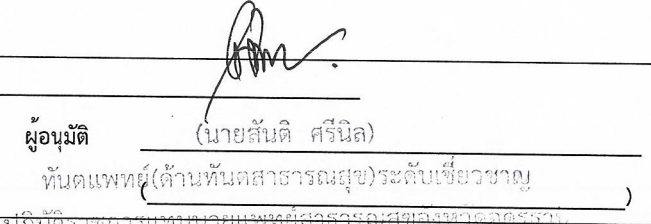 ผู้อนุมัติ (นายสันติ ศรีนิล)
ทันตแพทย์(ด้านทันตสาธารณสุข)ระดับเชี่ยวชาญ
( )